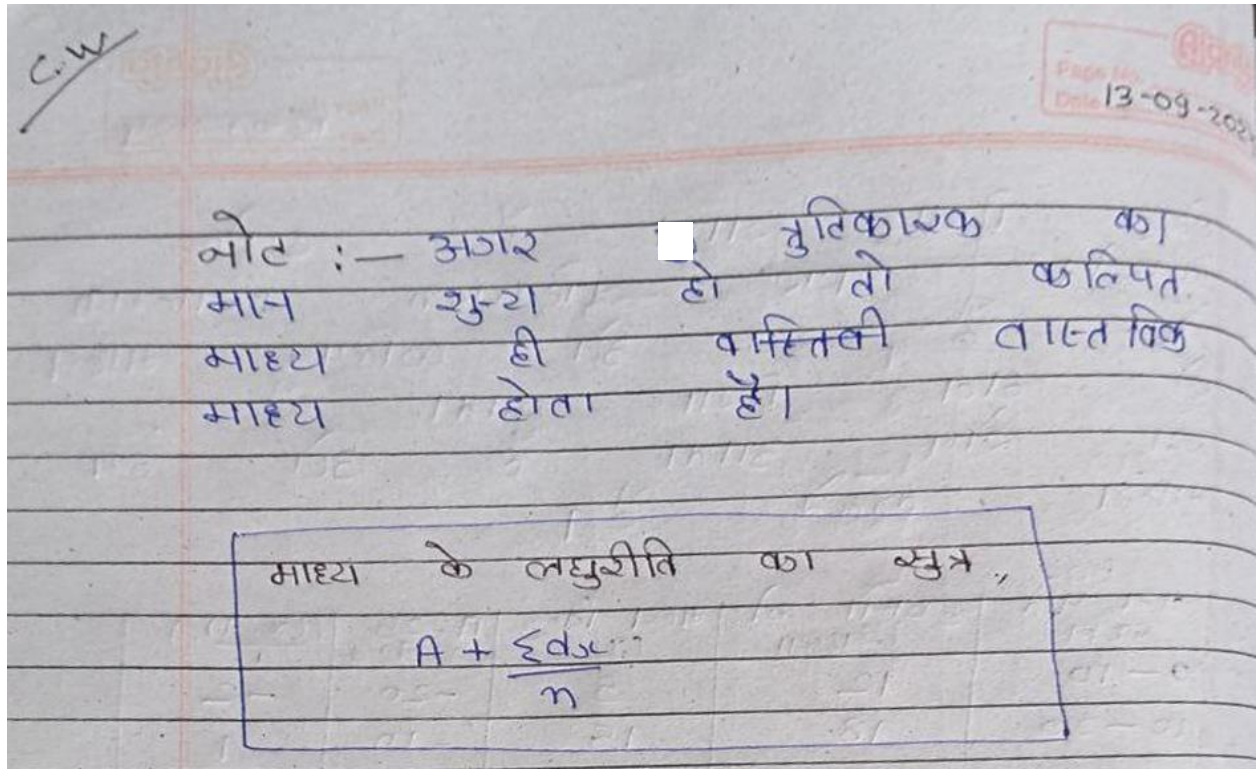 C.W
Page No.
Date 13-09-202
नोट :— अगर त्रुतिकारक का
मान शुन्य हो तो कल्पित
माध्य ही वास्तिवी वास्तविक
माध्य होता है।
माध्य के लघुरीति का सुत्र,,
A + Σdx
n